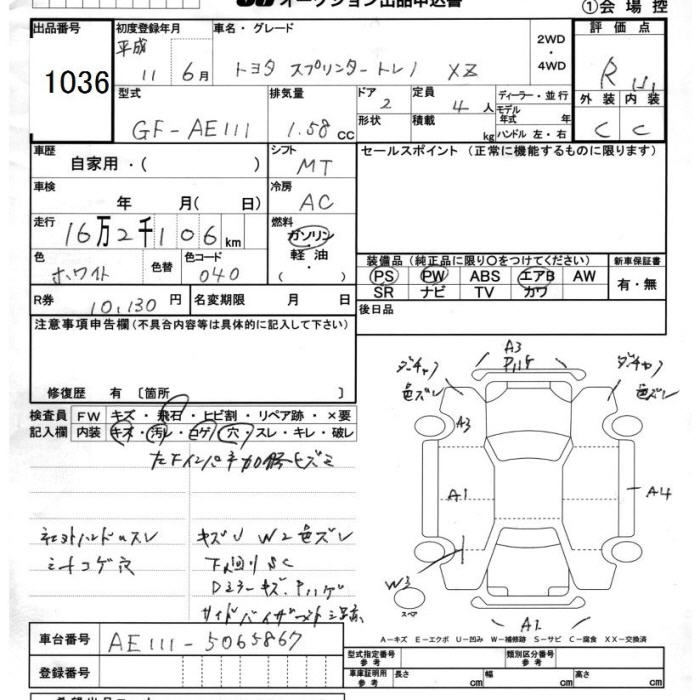 オークション出品申込書
①会場控
出品番号 初度登録年月 車名・グレード 評価点
1036 平成 11 6月 トヨタ スプリンタートレノ XZ 2WD・4WD R
型式 排気量 ドア 定員 ディーラー・並行 外装 内装
GF-AE111 1.58 CC 2 4人 モデル年式 年 C C
形状 積載 kg ハンドル 左・右
車歴 シフト セールスポイント (正常に機能するものに限ります)
自家用・( ) MT
車検 冷房
年 月( 日) AC
走行 燃料
16万2千106km ガソリン
軽油・( )
色 色替 色コード
ホワイト 040
装備品 (純正品に限り○をつけてください) 新車保証書
PS PW ABS エアB AW 有・無
SR ナビ TV カワ
R券 10,130円 名変期限 月 日
後日品
注意事項申告欄(不具合内容等は具体的に記入して下さい)
修復歴 有 〔箇所 〕
検査員 FW キズ・飛石・ヒビ割・リペア跡・×要
記入欄 内装 キズ・汚レ・コゲ・穴・スレ・キレ・破レ
A3
色ズレ 色ズレ
A3
A1 A4
W3
スペア
A1
キズU W2 色ズレ
下回りSC
Dミラーキズ
A-キズ E-エクボ U-凹み W-補修跡 S-サビ C-腐食 XX-交換済
車台番号 AE111-5065867
登録番号
型式指定番号 参考 類別区分番号 参考
車庫証明用 参考 長さ cm 幅 cm 高さ cm